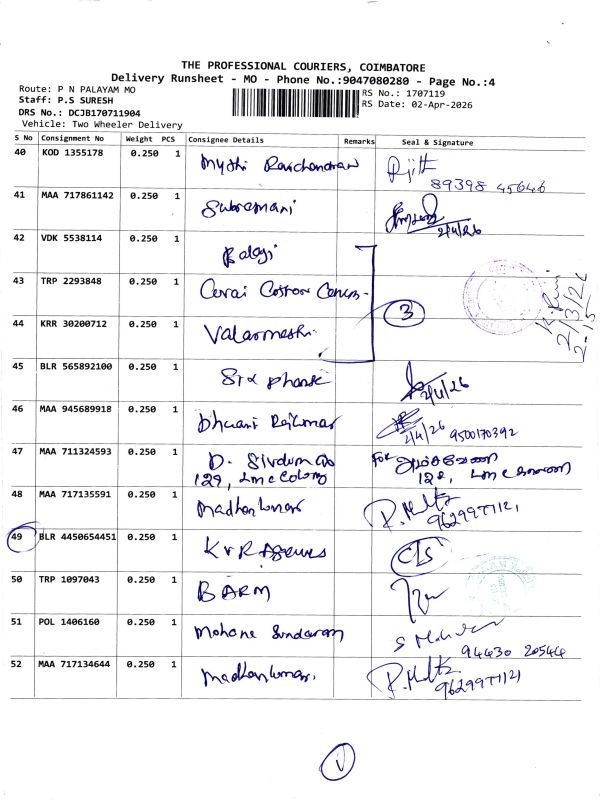 THE PROFESSIONAL COURIERS, COIMBATORE
Delivery Runsheet - MO - Phone No.:9047080280 - Page No.:4
Route: P N PALAYAM MO
RS No.: 1707119
Staff: P.S SURESH
RS Date: 02-Apr-2026
DRS No.: DCJB170711904
Vehicle: Two Wheeler Delivery
S No Consignment No Weight PCS Consignee Details Remarks Seal & Signature
40 KOD 1355178 0.250 1
89398 45646
41 MAA 717861142 0.250 1 Subramani
2/4/26
42 VDK 5538114 0.250 1 Balaji
43 TRP 2293848 0.250 1
3
2/3/26
2-15
44 KRR 30200712 0.250 1
45 BLR 565892100 0.250 1 Six phase
2/4/26
46 MAA 945689918 0.250 1
2/4/26 9500170392
47 MAA 711324593 0.250 1 D.
129, Lmc colony
For
48 MAA 717135591 0.250 1 Madhankumar
9629977121
49 BLR 4450654451 0.250 1 KVR Agencies
C/S
50 TRP 1097043 0.250 1 BARM
51 POL 1406160 0.250 1 Mohana Sundaram
94430 20544
52 MAA 717134644 0.250 1 Madhankumar
9629977121